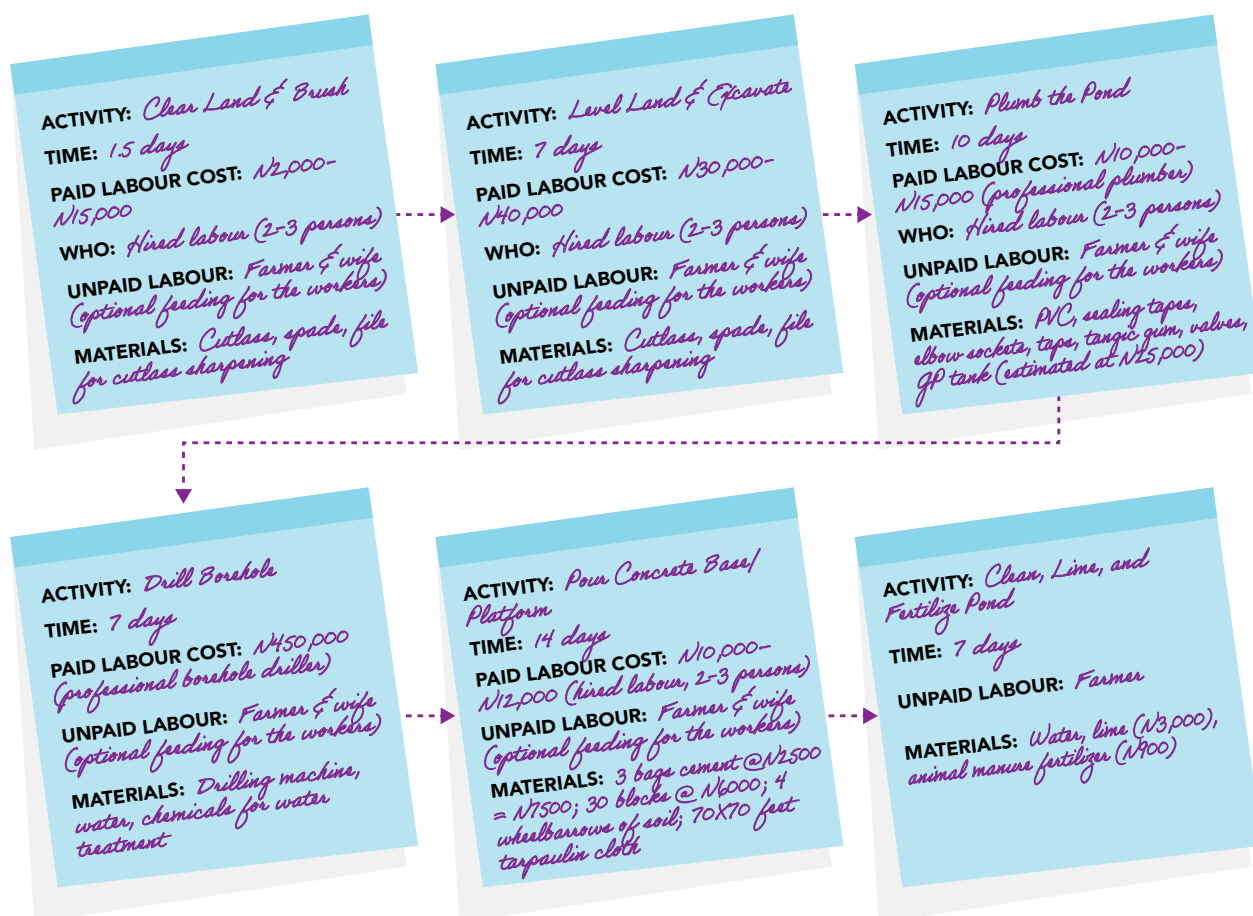 ACTIVITY: Clear Land & Brush
TIME: 1.5 days
PAID LABOUR COST: N2,000–
N15,000
WHO: Hired labour (2–3 persons)
UNPAID LABOUR: Farmer & wife
(optional feeding for the workers)
MATERIALS: Cutlass, spade, file
for cutlass sharpening
ACTIVITY: Level Land & Excavate
TIME: 7 days
PAID LABOUR COST: N30,000–
N40,000
WHO: Hired labour (2–3 persons)
UNPAID LABOUR: Farmer & wife
(optional feeding for the workers)
MATERIALS: Cutlass, spade, file
for cutlass sharpening
ACTIVITY: Plumb the Pond
TIME: 10 days
PAID LABOUR COST: N10,000–
N15,000 (professional plumber)
WHO: Hired labour (2–3 persons)
UNPAID LABOUR: Farmer & wife
(optional feeding for the workers)
MATERIALS: PVC, sealing tapes,
elbow sockets, taps, tangic gum, valves,
GP tank (estimated at N25,000)
ACTIVITY: Drill Borehole
TIME: 7 days
PAID LABOUR COST: N450,000
(professional borehole driller)
UNPAID LABOUR: Farmer & wife
(optional feeding for the workers)
MATERIALS: Drilling machine,
water, chemicals for water
treatment
ACTIVITY: Pour Concrete Base/
Platform
TIME: 14 days
PAID LABOUR COST: N10,000–
N12,000 (hired labour, 2–3 persons)
UNPAID LABOUR: Farmer & wife
(optional feeding for the workers)
MATERIALS: 3 bags cement @N2500
= N7500; 30 blocks @ N6000; 4
wheelbarrows of soil; 70X70 feet
tarpaulin cloth
ACTIVITY: Clean, Lime, and
Fertilize Pond
TIME: 7 days
UNPAID LABOUR: Farmer
MATERIALS: Water, lime (N3,000),
animal manure fertilizer (N900)